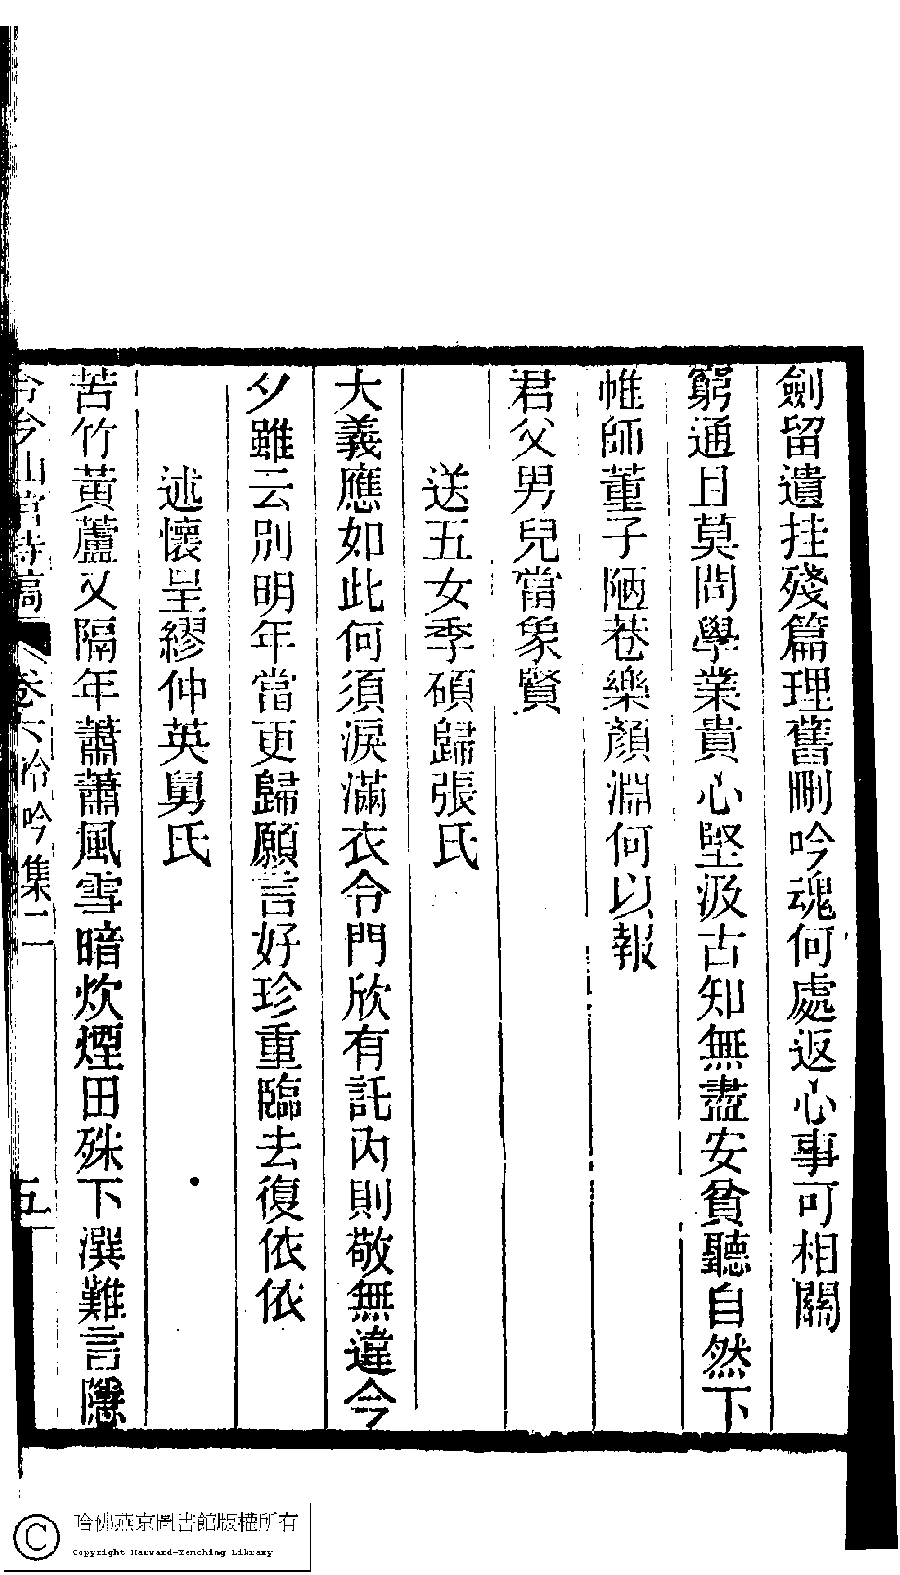 劍留遺挂殘篇理舊刪吟魂何處返心事可相關
窮通且莫問學業貴心堅汲古知無盡安貧聽自然下
帷師董子陋巷樂顏淵何以報
君父男兒當象賢
送五女季碩歸張氏
大義應如此何須淚滿衣令門欣有託內則敬無違今
夕雖云別明年當更歸願言好珍重臨去復依依
述懷呈繆仲英舅氏
苦竹黃蘆又隔年蕭蕭風雪暗炊煙田殊下潠難言隱
吟山館詩稿 卷六 吟集二 五
哈佛燕京圖書館版權所有
Copyright Harvard-Yenching Library